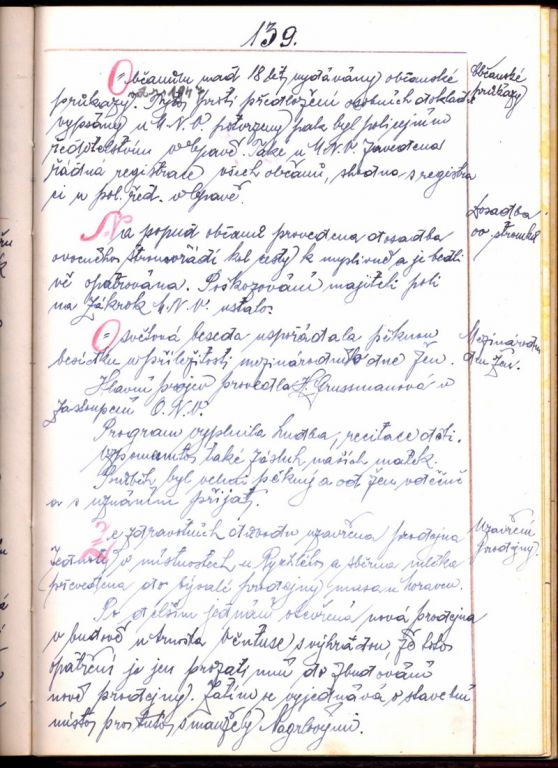 139.
Občanům nad 18 let vydávány občanské
Občanské
průkazy
průkazy. Tyto proti předložení osobních dokladů
vypsány u M.N.V. potvrzeny pak byl policejním
ředitelstvím v Opavě. Také u M.N.V. zavedena
řádná registrace všech občanů, shodna s registra
ci u pol. řed. v Opavě.
Na popud občanů provedena dosadba
Dosadba
ov. stromků
ovocného stromořadí kol cesty k myslivně a je bedli
vě opatrována. Poškozování majiteli polí
na zákrok M.N.V. ustalo.
Osvětová beseda uspořádala pěknou
Mezinárodní
den žen.
besídku u příležitosti mezinárodního dne žen.
Hlavní projev provedla Grussmanová v
zastoupení O.N.V.
Program vyplnila hudba, recitace dětí.
Vzpomenuto také zásluh našich matek.
Průběh byl velmi pěkný a od žen vděčně
a s uznáním přijat.
Ze zdravotních důvodů uzavřena prodejna
Uzavření
prodejny.
Jednoty v místnostech u Rychlého a sběrna mléka
převedena do bývalé prodejny masa u
Po delším jednání otevřena nová prodejna
v budově u s výhradou, že toto
opatření je jen prozatímní do zbudování
nové prodejny. Zatím se vyjednává o stavební
místo pro tuto s manžely